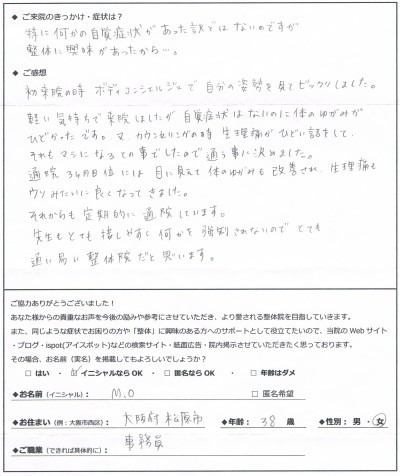 ◆ ご来院のきっかけ・症状は？
特に何かの自覚症状があった訳ではないのですが
整体に興味があったから…。
◆ ご感想
初来院の時 ボディコンシェルジュで自分の姿勢を見てビックリしました。
軽い気持ちで来院しましたが自覚症状はないのに体のゆがみが
ひどかったです。又、カウンセリングの時 生理痛がひどい話をして、
それもマシになるとの事でしたので通う事に決めました。
通院3ヶ月目位には 目に見えて体のゆがみも改善され、生理痛も
ウソみたいに良くなってきました。
それからも定期的に通院しています。
先生もとても接しやすく何かを強制されないのでとても
通い易い整体院だと思います。
ご協力ありがとうございました！
あなた様からの貴重なお声を今後の励みや参考にさせていただき、より愛される整体院を目指していきます。
また、同じような症状でお困りの方や「整体」に興味のある方へのサポートとして役立てたいので、当院のWebサイト
・ブログ・ispot(アイスポット)などの検索サイト・紙面広告・院内掲示させていただきたく思っております。
その場合、お名前（実名）を掲載してもよろしいでしょうか？
□ はい ・ ☑ イニシャルならOK ・ □ 匿名ならOK ・ □ 年齢はダメ
◆お名前（イニシャル）： M.O □ 匿名希望
◆お住まい（例：大阪市西区）： 大阪府松原市 ◆年齢： 38 歳 ◆性別： 男 ・ 女
◆ご職業（できれば具体的に）： 事務員